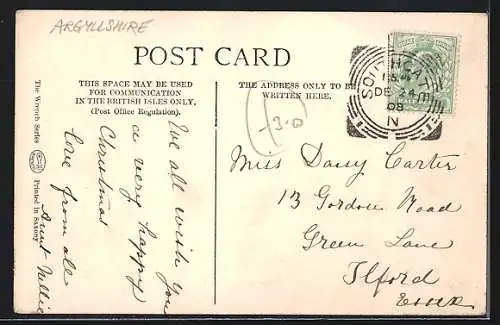 ARGYLLSHIRE
POST CARD
THIS SPACE MAY BE USED
FOR COMMUNICATION
IN THE BRITISH ISLES ONLY.
(Post Office Regulation).
THE ADDRESS ONLY TO BE
WRITTEN HERE.
The Wrench Series
Printed in Saxony
We all wish you
a very happy
Christmas
love from all
Aunt Nellie
3.0
SOUTHGATE
DE 24
08
N
Miss Daisy Carter
13 Gordon Road
Green Lane
Ilford
Essex